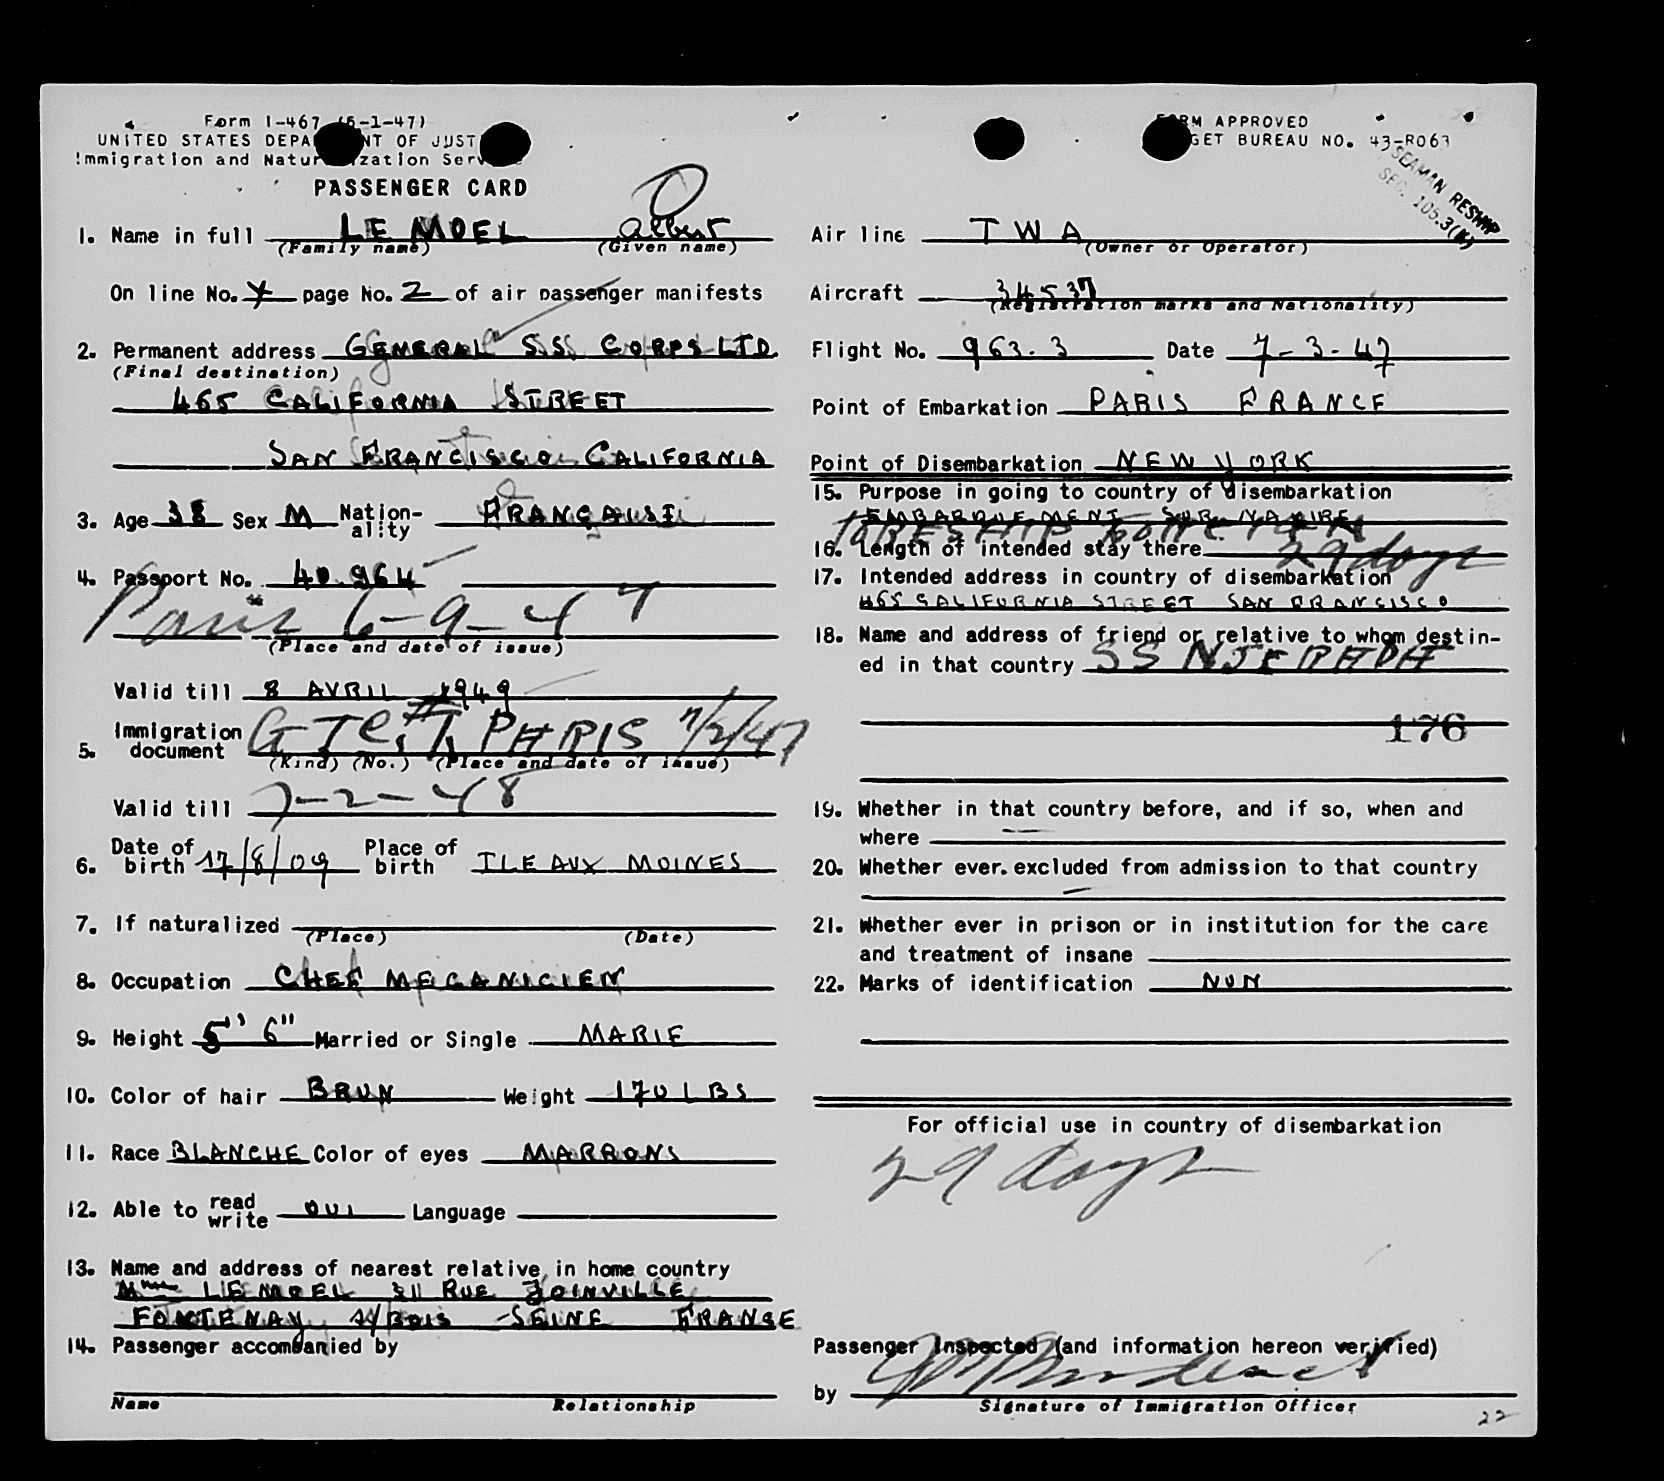 Form I-467 (6-1-47)
UNITED STATES DEPA NT OF JUST
Immigration and Natur zation Serv
FORM APPROVED
GET BUREAU NO. 43-R063
SEAMAN RESHIP
SEC. 105.3(K)
PASSENGER CARD
1. Name in full LE MOEL Albert
(Family name) (Given name)
On line No. 4 page No. 2 of air passenger manifests
2. Permanent address GENERAL S.S. CORPS LTD.
(Final destination)
465 CALIFORNIA STREET
SAN FRANCISCO CALIFORNIA
3. Age 38 Sex M Nation-ality FRANCAISE
4. Passport No. 40.964
Paris 6-9-47
(Place and date of issue)
Valid till 8 AVRIL 1949
5. Immigration document PARIS 7/2/47
(Kind) (No.) (Place and date of issue)
Valid till 7-2-48
6. Date of birth 17/8/09 Place of birth ILE AUX MOINES
7. If naturalized
(Place) (Date)
8. Occupation CHEF MECANICIEN
9. Height 5' 6" Married or Single MARIE
10. Color of hair BRUN Weight 170 LBS
11. Race BLANCHE Color of eyes MARRONS
12. Able to read write OUI Language
13. Name and address of nearest relative in home country
Mme LE MOEL RUE JOINVILLE
FONTENAY S/BOIS - SEINE FRANCE
14. Passenger accompanied by
Name Relationship
Air line TWA
(Owner or Operator)
Aircraft 34537
(Registration marks and Nationality)
Flight No. 963.3 Date 7-3-47
Point of Embarkation PARIS FRANCE
Point of Disembarkation NEW YORK
15. Purpose in going to country of disembarkation
EMBARQUEMENT SUR NAVIRE
TO RESHIP
16. Length of intended stay there 29 days
17. Intended address in country of disembarkation
465 CALIFORNIA STREET SAN FRANCISCO
18. Name and address of friend or relative to whom destin-
ed in that country SS
176
19. Whether in that country before, and if so, when and
where —
20. Whether ever excluded from admission to that country
—
21. Whether ever in prison or in institution for the care
and treatment of insane
22. Marks of identification NON
For official use in country of disembarkation
29 days
Passenger Inspected (and information hereon verified)
by
Signature of Immigration Officer
22